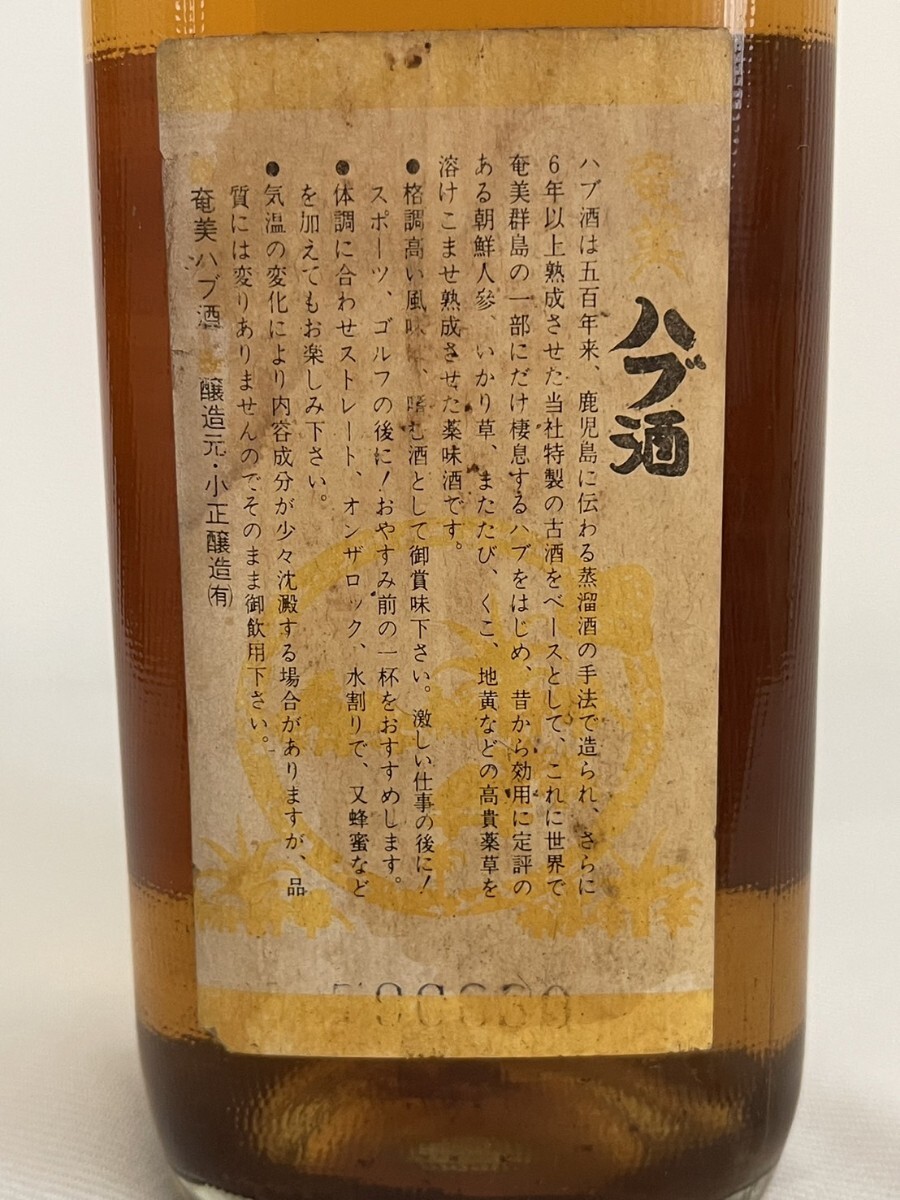 奄美
ハブ酒
ハブ酒は五百年来、鹿児島に伝わる蒸溜酒の手法で造られ、さらに
6年以上熟成させた当社特製の古酒をベースとして、これに世界で
奄美群島の一部にだけ棲息するハブをはじめ、昔から効用に定評の
ある朝鮮人參、いかり草、またたび、くこ、地黄などの高貴薬草を
溶けこませ熟成させた薬味酒です。
●格調高い風味、嗜む酒として御賞味下さい。激しい仕事の後に!
スポーツ、ゴルフの後に!おやすみ前の一杯をおすすめします。
●体調に合わせストレート、オンザロック、水割りで、又蜂蜜など
を加えてもお楽しみ下さい。
●気温の変化により内容成分が少々沈澱する場合がありますが、品
質には変りありませんのでそのまま御飲用下さい。
奄美ハブ酒 醸造元・小正醸造㈲